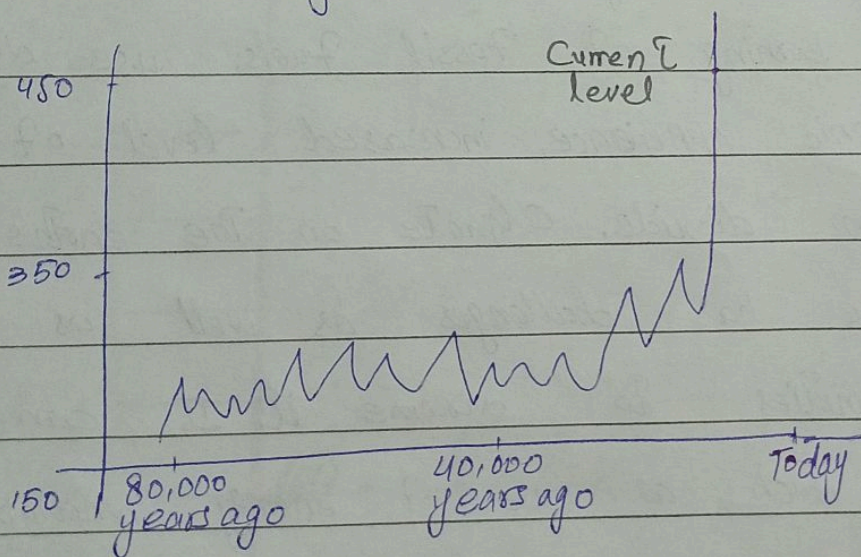 450
Current
level
350
150
80,000
years ago
40,000
years ago
Today